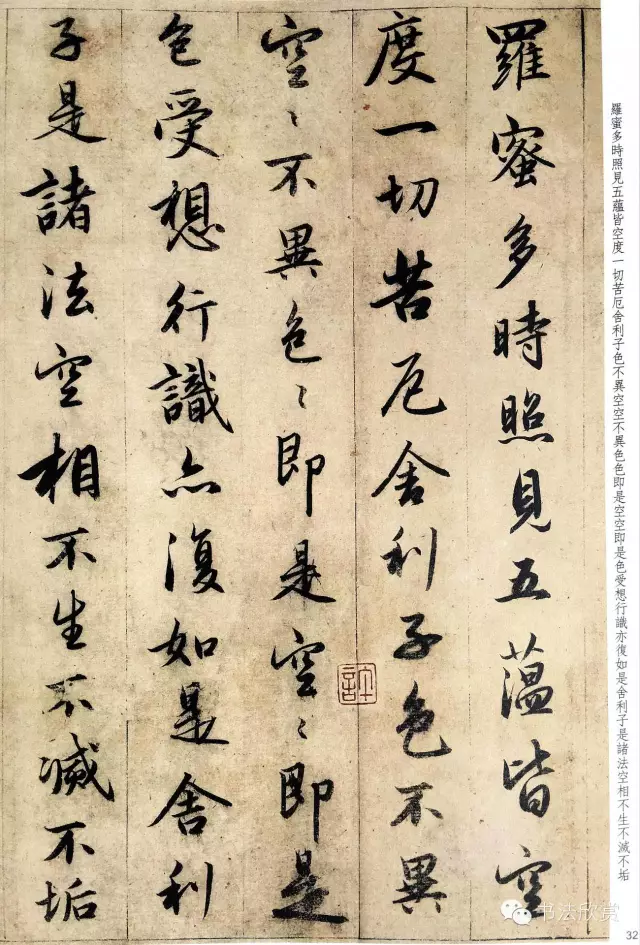 羅蜜多時照見五蘊皆空度一切苦厄舍利子色不異空空不異色色即是空空即是色受想行識亦復如是舍利子是諸法空相不生不滅不垢
羅蜜多時照見五蘊皆空
度一切苦厄舍利子色不異
空〻不異色〻即是空〻即是
色受想行識亦復如是舍利
子是諸法空相不生不滅不垢
书法欣赏
32